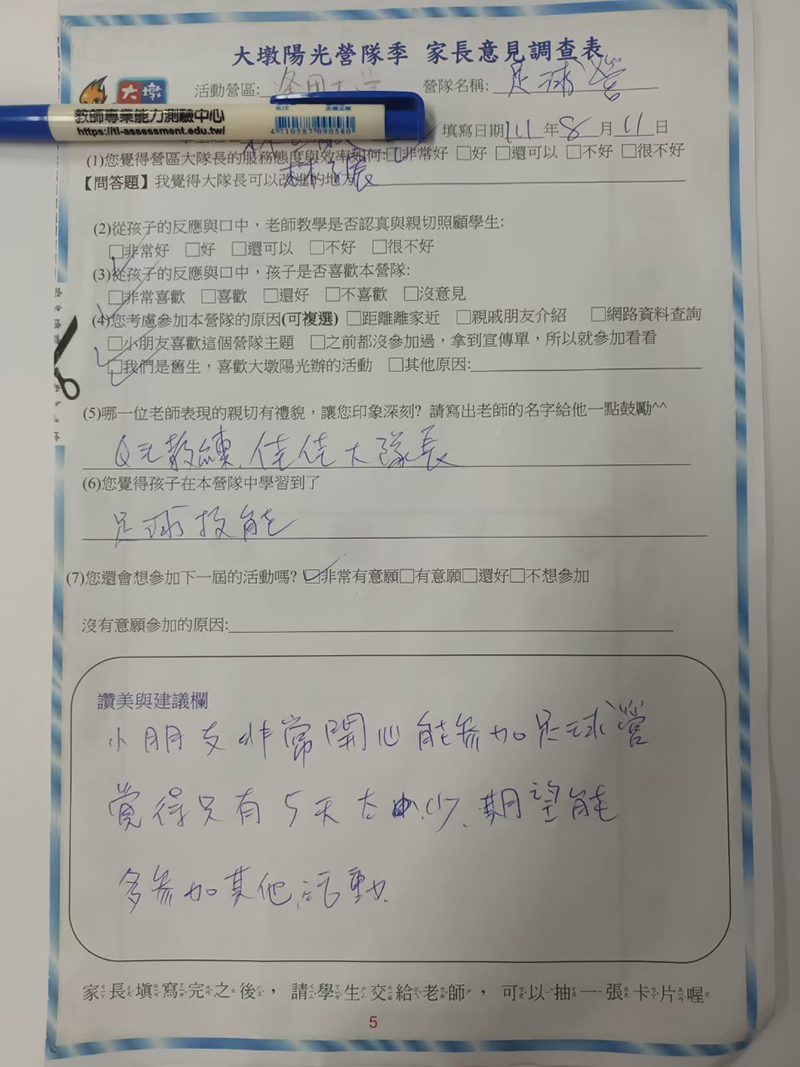 大墩陽光營隊季 家長意見調查表
大墩
活動營區: 逢甲大學 營隊名稱: 足球營
教師專業能力測驗中心
https://tl-assessment.edu.tw/
4710587090580
填寫日期111年8月11日
(1)您覺得營區大隊長的服務態度與效率如何:□非常好 □好 □還可以 □不好 □很不好
【問答題】我覺得大隊長可以改進的地方
(2)從孩子的反應與口中，老師教學是否認真與親切照顧學生:
□非常好 □好 □還可以 □不好 □很不好
(3)從孩子的反應與口中，孩子是否喜歡本營隊:
□非常喜歡 □喜歡 □還好 □不喜歡 □沒意見
(4)您考慮參加本營隊的原因(可複選) □距離離家近 □親戚朋友介紹 □網路資料查詢
□小朋友喜歡這個營隊主題 □之前都沒參加過，拿到宣傳單，所以就參加看看
□我們是舊生，喜歡大墩陽光辦的活動 □其他原因:
(5)哪一位老師表現的親切有禮貌，讓您印象深刻? 請寫出老師的名字給他一點鼓勵^^
Q毛教練、佳佳大隊長
(6)您覺得孩子在本營隊中學習到了
足球技能
(7)您還會想參加下一屆的活動嗎? ☑非常有意願□有意願□還好□不想參加
沒有意願參加的原因:
讚美與建議欄
小朋友非常開心能參加足球營
覺得只有5天太少，期望能
多參加其他活動
家長填寫完之後，請學生交給老師，可以抽一張卡片喔
5